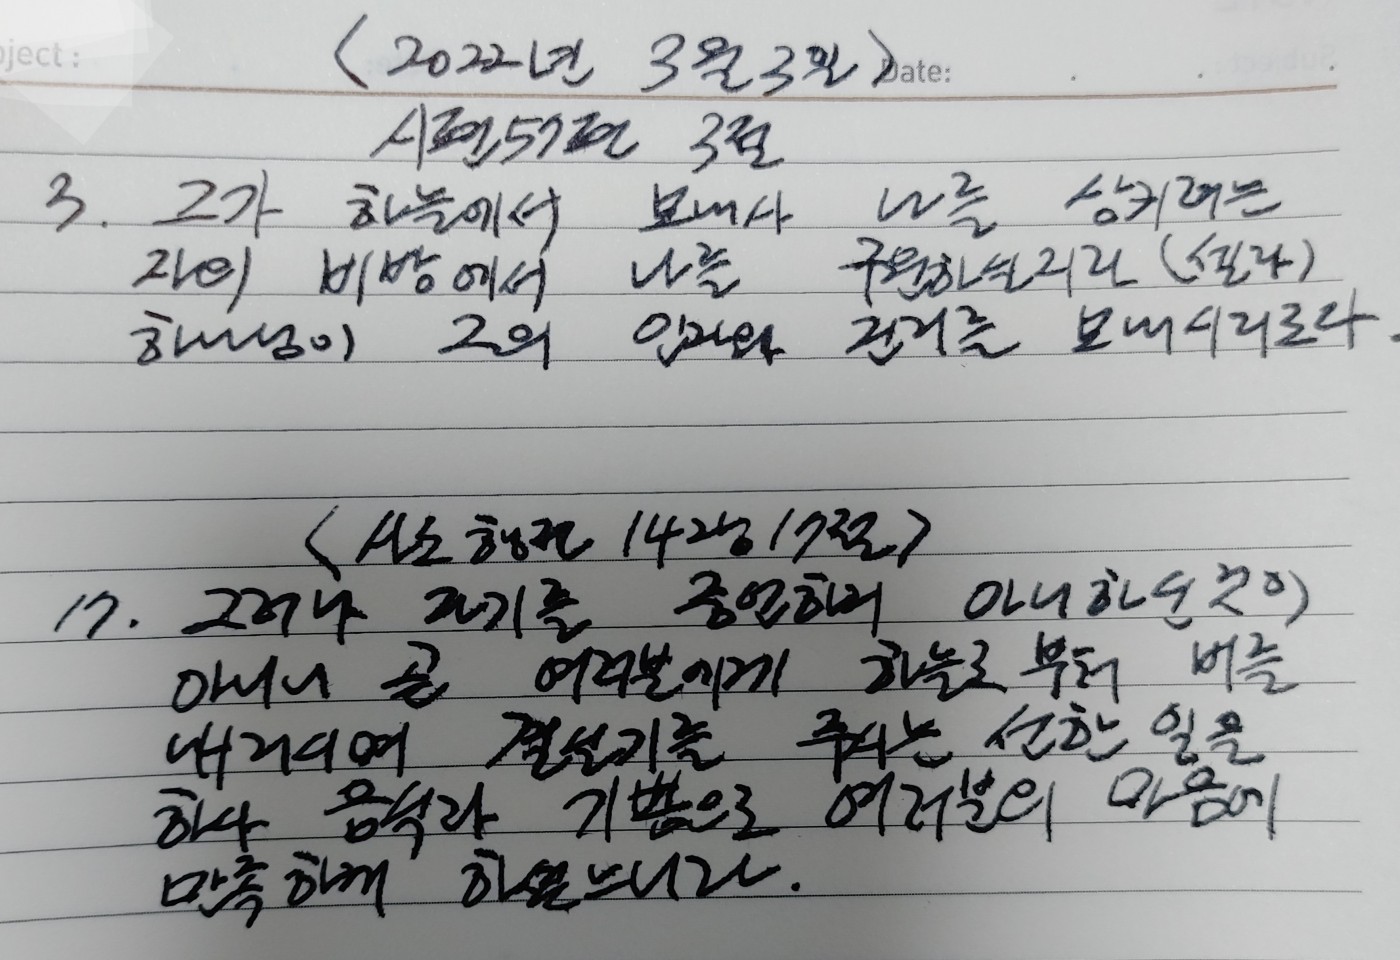 ject :
〈 2022년 3월 3일 〉 Date:
시편57편 3절
3. 그가 하늘에서 보내사 나를 삼키려는
자의 비방에서 나를 구원하실지라 (셀라)
하나님이 그의 인자와 진리를 보내시리로다.
〈 사도행전 14장 17절 〉
17. 그러나 자기를 증언하지 아니하신 것이
아니니 곧 여러분에게 하늘로부터 비를
내리시며 결실기를 주시는 선한 일을
하사 음식과 기쁨으로 여러분의 마음에
만족하게 하셨느니라.